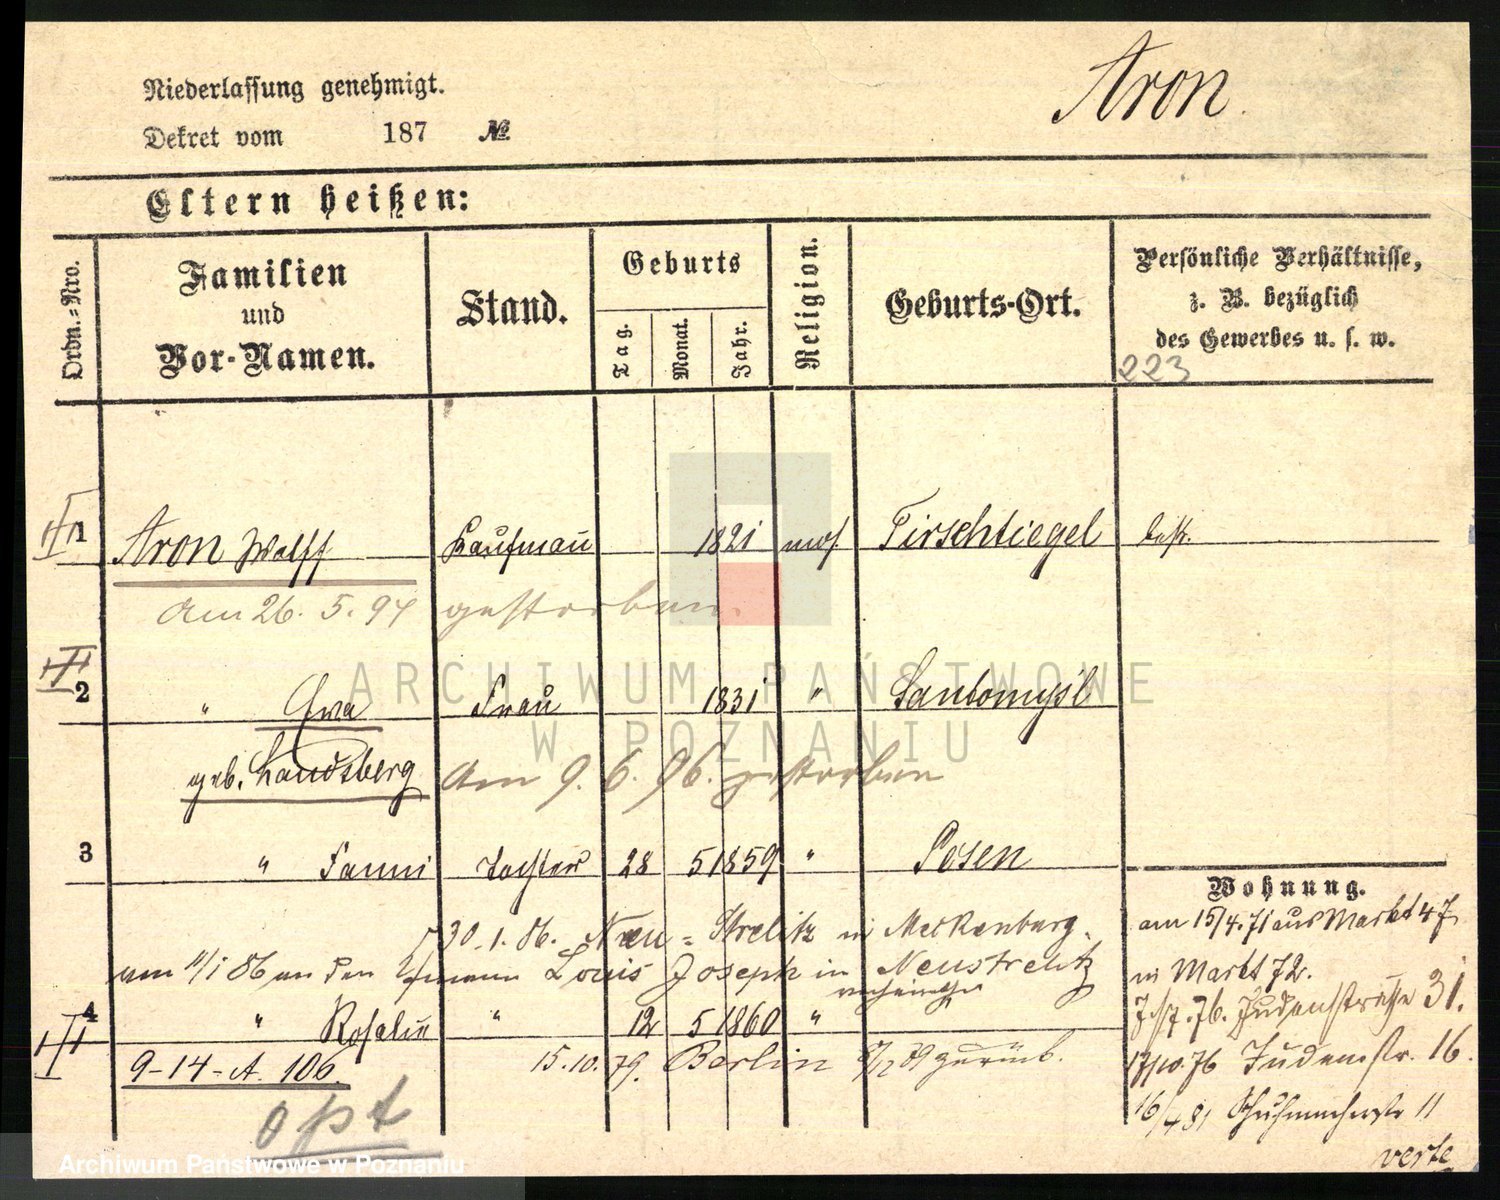 Niederlassung genehmigt.
Aron.
Dekret vom 187 №
Eltern heißen:
Ordn.-Nro.
Familien und Vor-Namen.
Stand.
Geburts
Tag.
Monat.
Jahr.
Religion.
Geburts-Ort.
Persönliche Verhältnisse, z. B. bezüglich des Gewerbes u. s. w.
223
1 Aron Wolff Kaufmann 1821 mos Tirschtiegel best.
am 26. 5. 94 gestorben.
2 " Ewa Frau 1831 " Santomysl
geb. Landsberg am 9. 6. 96. gestorben
3 " Fanni Tochter 28 5 1859 " Posen
Wohnung.
30.1.86. Neu-Strelitz in Meckenburg.
am 15/4.71 aus Markt 47
am 11/1 86 an den Kfmann Louis Joseph in Neustrelitz
verheirathet
in Markt 72.
7/7.76. Judenstraße 31.
4 " Rosalie " 12 5 1860 "
9-14-A. 106. 15.10.79. Berlin zurück.
17/10.76 Judenstr. 16.
16/4 81 Schuhmacherstr 11
opt
verte
ARCHIWUM PAŃSTWOWE
W POZNANIU
Archiwum Państwowe w Poznaniu